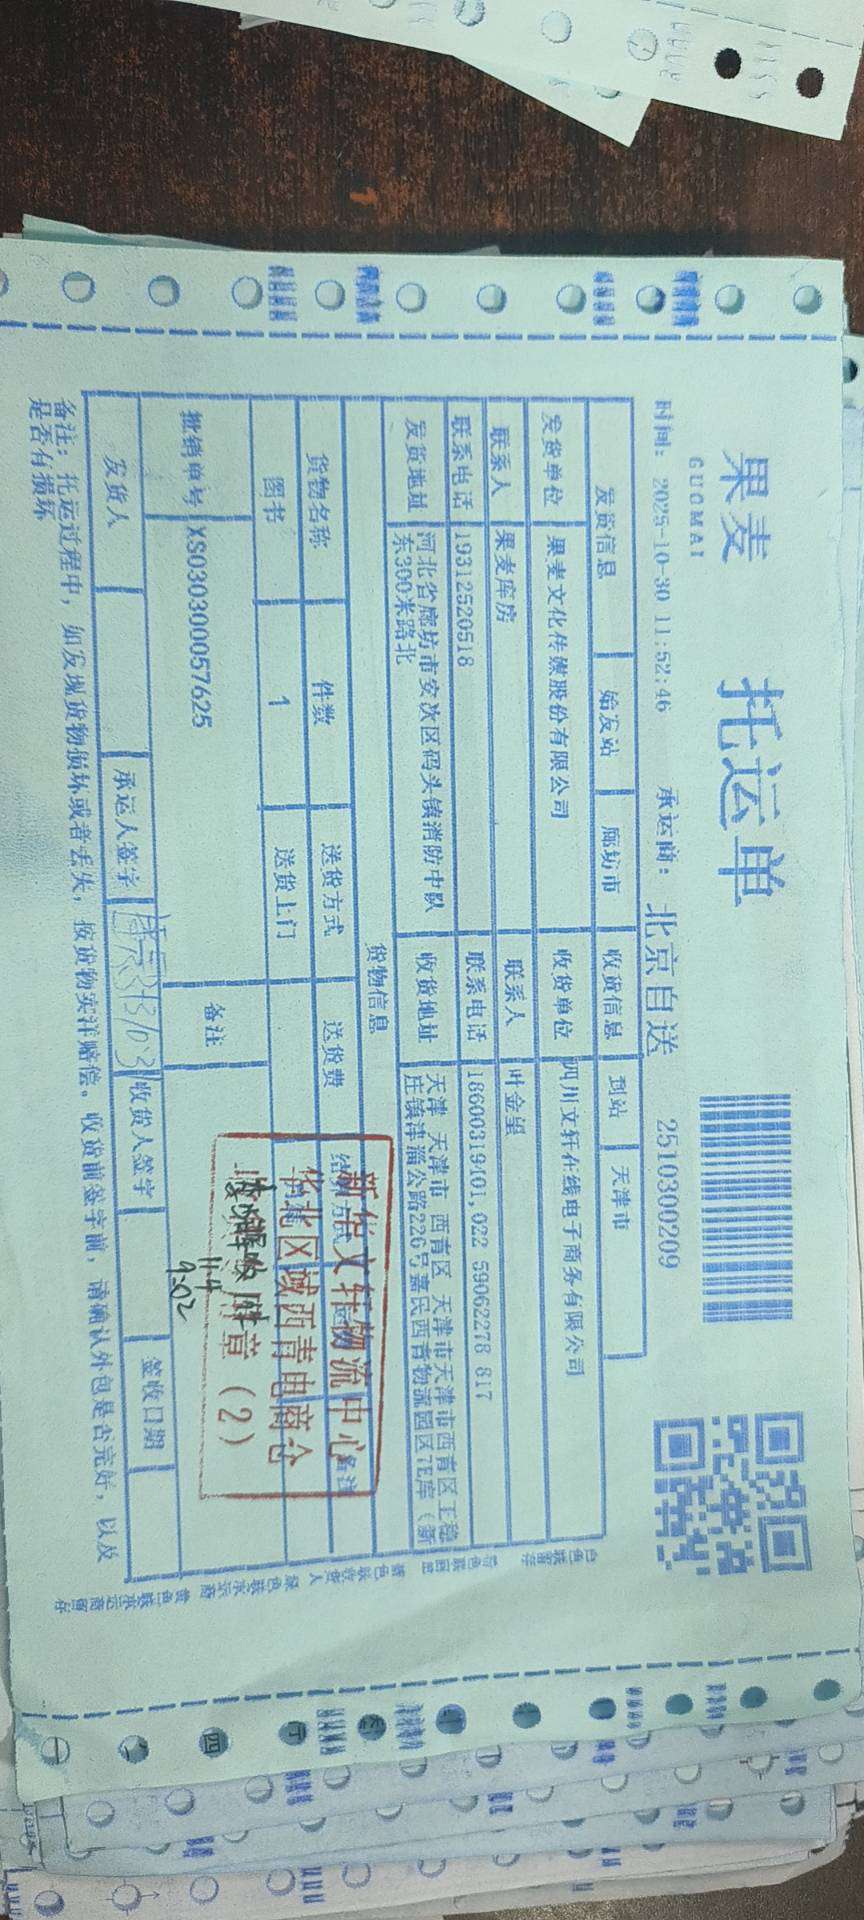 果麦 托运单
GUOMAI
时间: 2025-10-30 11:52:46 承运商: 北京自送 2510300209
发货信息 始发站 廊坊市 收货信息 到站 天津市
发货单位 果麦文化传媒股份有限公司 收货单位 四川文轩在线电子商务有限公司
联系人 果麦库房 联系人 叶金望
联系电话 19312520518 联系电话 18600319401,022 59062278 817
发货地址 河北省廊坊市安次区码头镇消防中队东300米路北 收货地址 天津 天津市 西青区 天津市天津市西青区王稳庄镇津淄公路226号嘉民西青物流园区7E库(新
货物信息
货物名称 件数 送货方式 送货费 备注
图书 1 送货上门
批销单号 XS030300057625 备注
新华文轩物流中心
华北区域西青电商仓
章(2)
11.4
9:02
发货人 承运人签字 收货人签字 签收日期
备注: 托运过程中, 如发现货物损坏或者丢失, 按货物实洋赔偿。收货前签字前, 请确认外包是否完好, 以及
是否有损坏